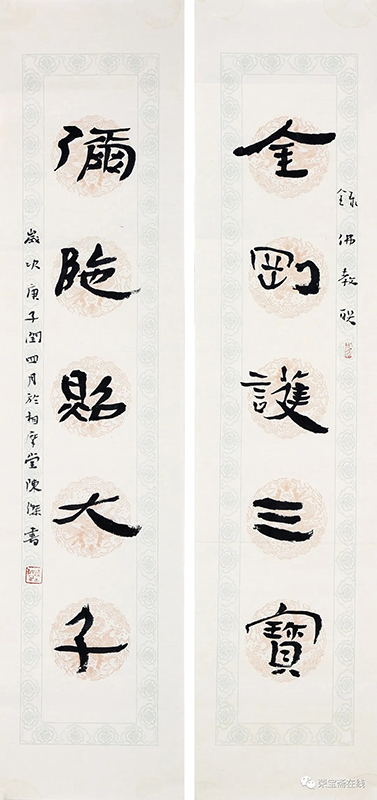 金剛護三寶
錄佛教联
彌陁賜大子
歲次庚子閏四月於相摩堂陳深書
荣宝斋在线